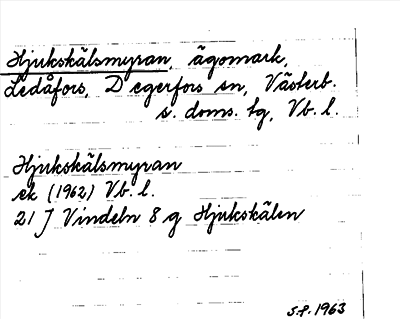 Hjukskälsmyran, ägomark,
Ledåfors, Degerfors sn, Västerb.
s. doms. tg, Vb. l.
Hjukskälsmyran
ek (1962) Vb. l.
21 J Vindeln 8 g Hjukskälen
S.P. 1963